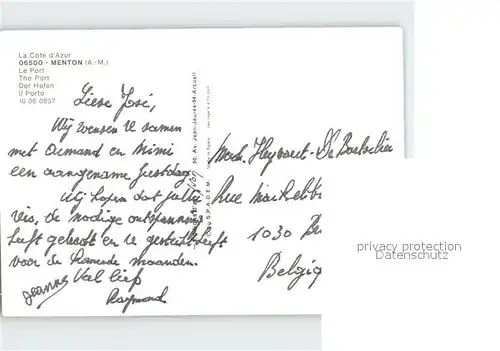 La Côte d'Azur
06500 - MENTON (A.-M.)
Le Port
The Port
Der Hafen
Il Porto
10 06 0837
Lieve José,
Wij wensen U samen
met Armand en Mimi
een aangename feestdag.
Wij hopen dat jullie
reis, de nodige ontspanning
heeft gebracht en U gesterkt heeft
voor de komende maanden.
Veel liefs
Jeanne
Raymond
30, Av. Jean-Jaurès-94-Arcueil
S.P.A.D.E.M.
Mad. Heyvaert - De
Rue
1030
Belgiq
privacy protection
Datenschutz